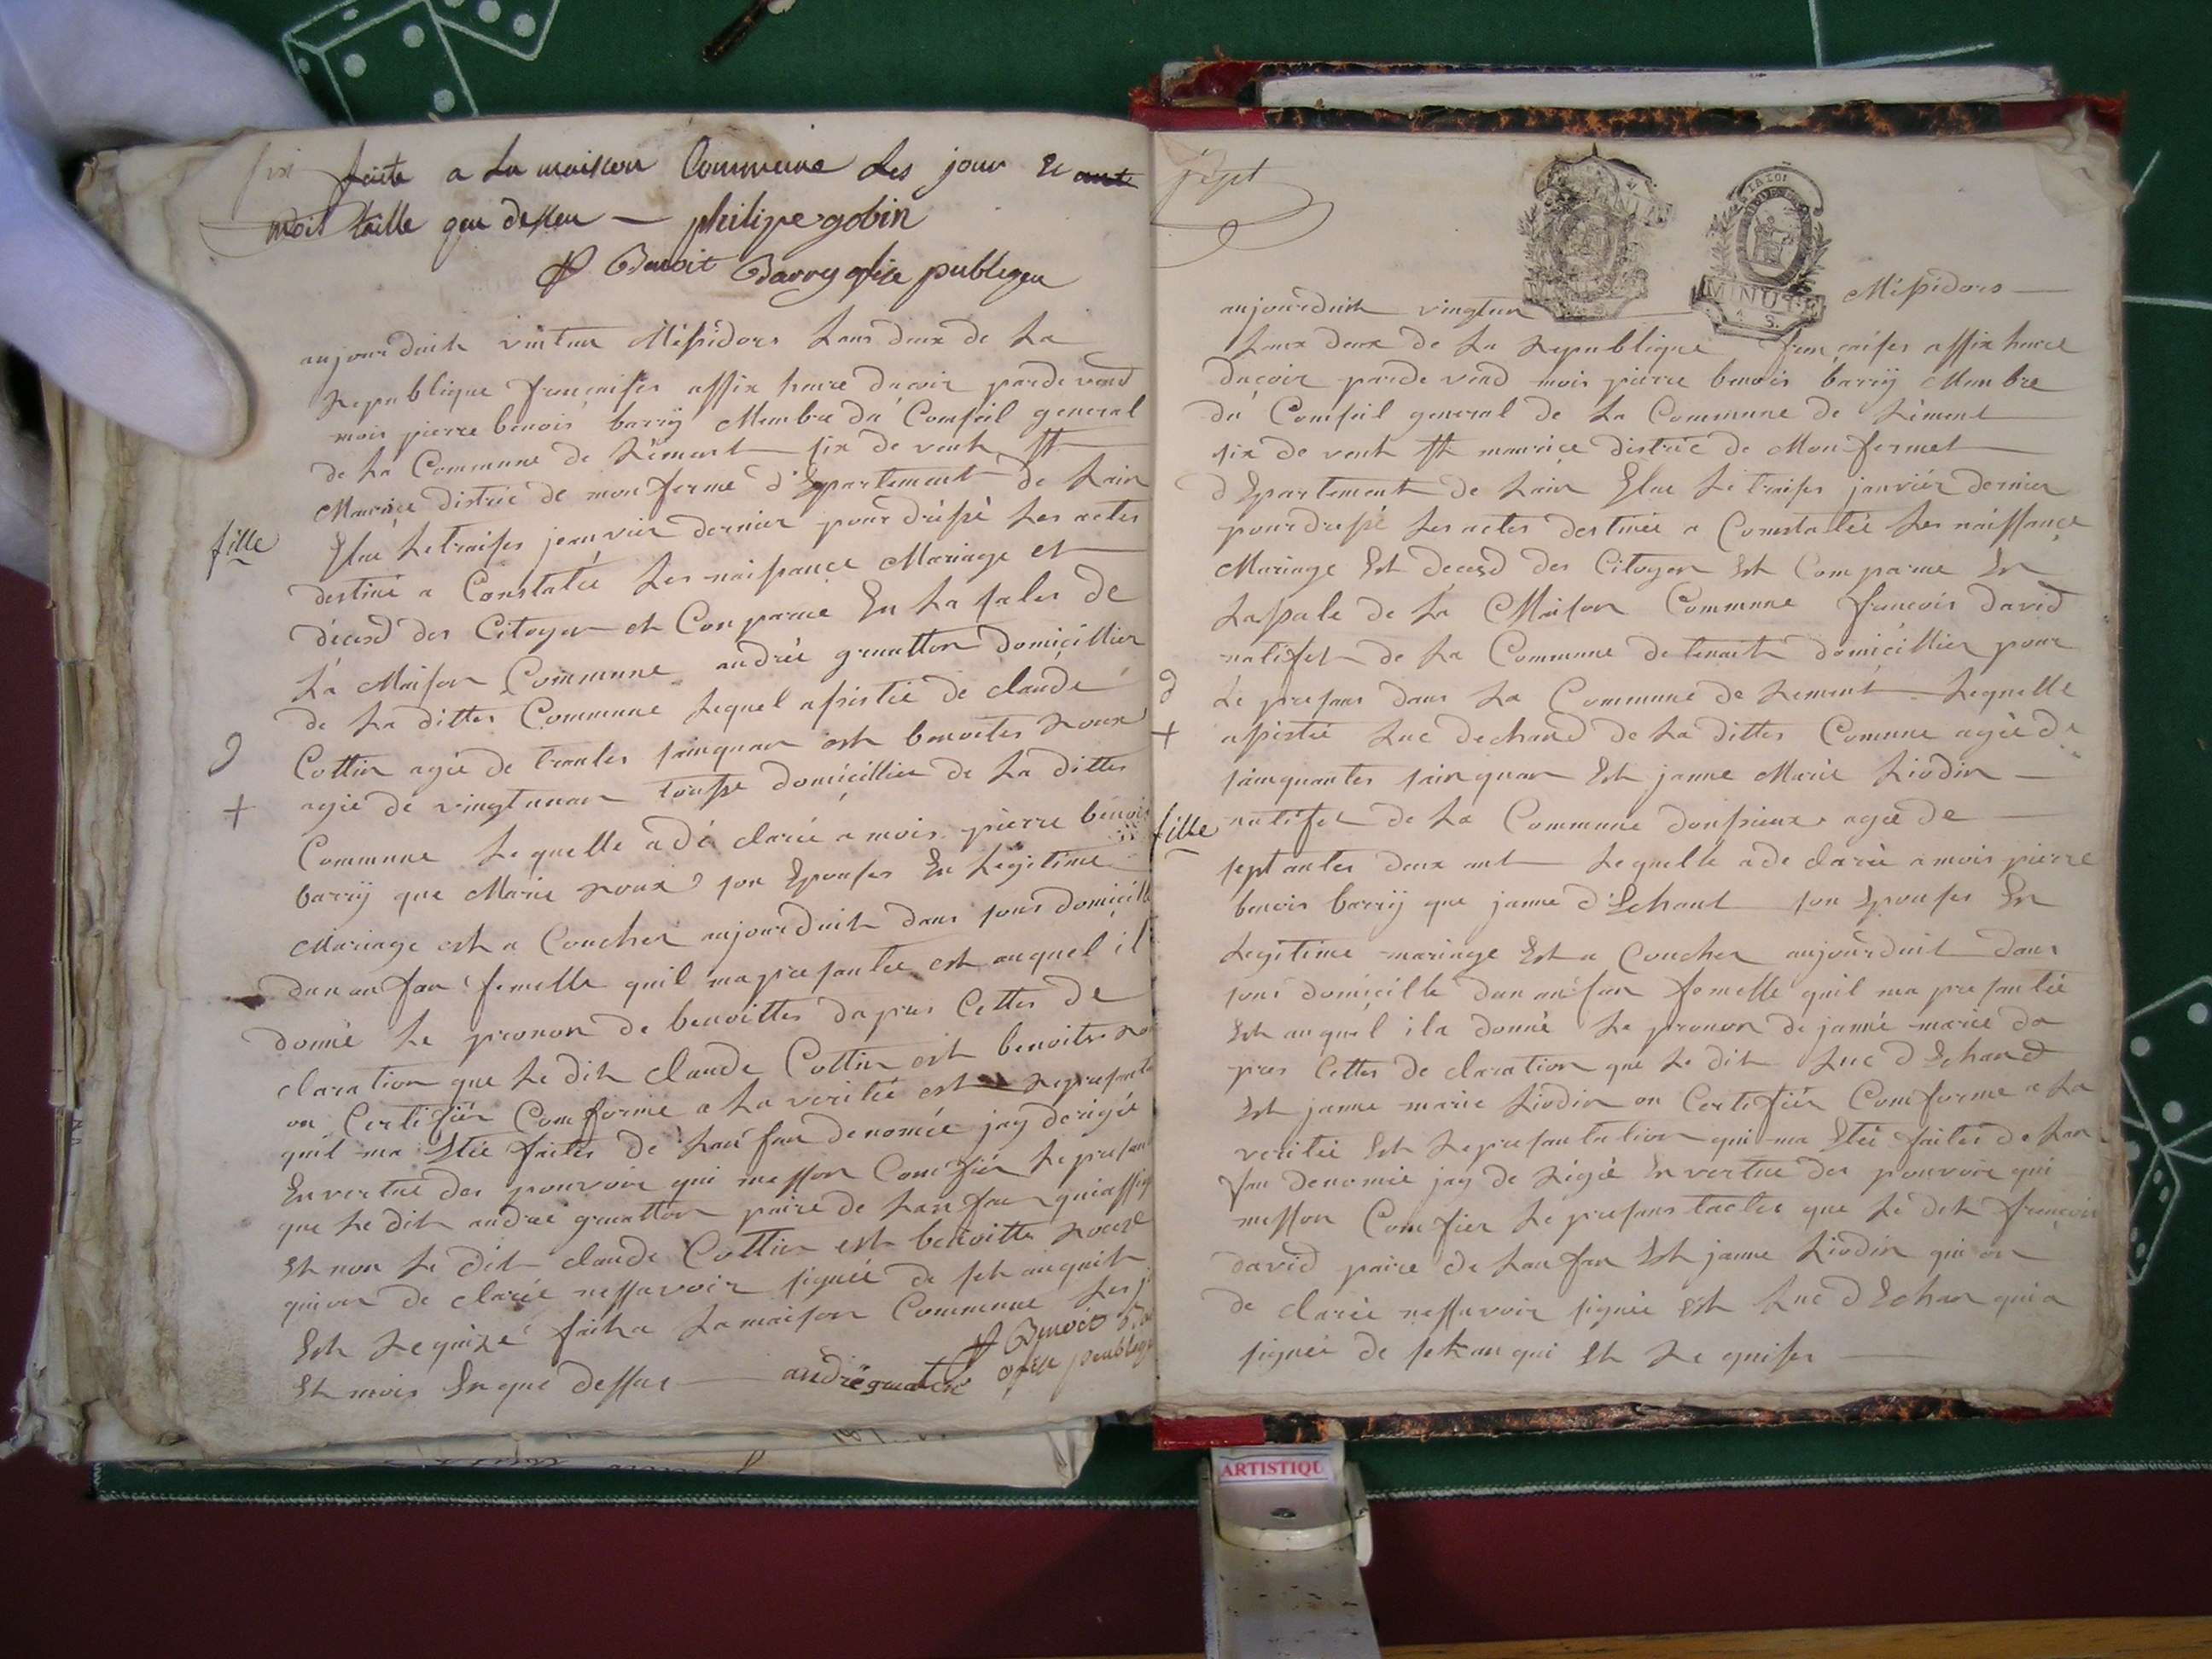 six faite a La maison Commeune Les jour Et ant
mois telle que desseu — philipe gobin
P Benoit Barry ofice publeqeu
aujourduit vintun Messidors Lans deux de La
Republique francaises assix heure ducoir parde vend
mois pierre benois barrÿ Membre du Conseil general
de La Commune de Rémens six de vent St
Maurice distric de mon ferme d'Epartement de Lain
Elue Letraises jeanvier dernier pour dréssé Les actes
fille
destiné a Constatée Les naissance Mariage et
décesd des Citoyen et Conparue En La sales de
La Maison Commune andrée gruatton domicillier
de La dittes Commune Lequel assistée de claude
Cottin agée de trantes sainquan est benoites roux
agée de vingtunan tousse domicillier de La dittes
9
+
Commune Lequelle adé clarée a mois pierre benois
barrÿ que Marie roux son Epouses En Legitime
Mariage est a Coucher aujourduit dans sons domicille
dun an fan femelle quil ma presantée est auquel il
donné Le pronon de benoittes dapres Cettes de
claration que Le dit claude Cottin est benoites
on Certifiér Comforme a La veritée est represant
quil ma Etée faites de Lan fan denomée jay derigée
En vertue des pouvoir qui messon Comfiér Le presan
que Le dit andrée gruatton paire de Lan fan qui assig
Et non Le dit claude Cottin est benoitte roux
quion de clarée nessavoir signée de set auquit
Est Requizé fait a La maison Commune Les j
Et mois En que dessus — andré gruaton
P Benoit
ofice peubleqe
sept
MINUTE
aujourduit vingtun Messidors —
Lanx deux de La Republique francaises assix heure
ducoir parde vend mois pierre benois barrÿ Membre
du Conseil general de La Commune de Rémens
six de vent St maurice distric de Mon fermet
d Epartement de Lain Elue Le traises janviér dernier
pour dressé Les actes destinée a Comstatée Les naissance
Mariage Est decesd des Citoyen Est Comparue En
La sale de La Maison Commune francois david
natifet de La Commune de tenait domicillier pour
Le presans dans La Commune de Remens Lequelle
9
+
assistée Luc dechand de La dittes Comune agée de
sainquantes sainquan Est janne Marie Liodin —
natifet de La Commune donsieux agée de
fille
septantes deux ant Lequelle a de clarée a mois pierre
benois barrÿ que janne d'Echant son Epouses En
Legitime mariage Est a Coucher aujourduit dans
sons domicille dun an fan femelle quil ma presantée
Est auquel il a donné Le pronon de janne marie da
pres Cettes de claration que Le dit Luc d Echand
Est janne marie Liodin on Certifiér Comforme a La
veritée Est Represantation qui ma Etée faites de Lan
fan denomée jay de Rigée En vertue des pouvoir qui
messon Comfier Le presans tactes que Le dit francois
david paire de Lan fan Est janne Liodin qui on
de clarée nessavoir signée Est Luc d Echan quia
signée de set auqui Est Re quises —
ARTISTIQU